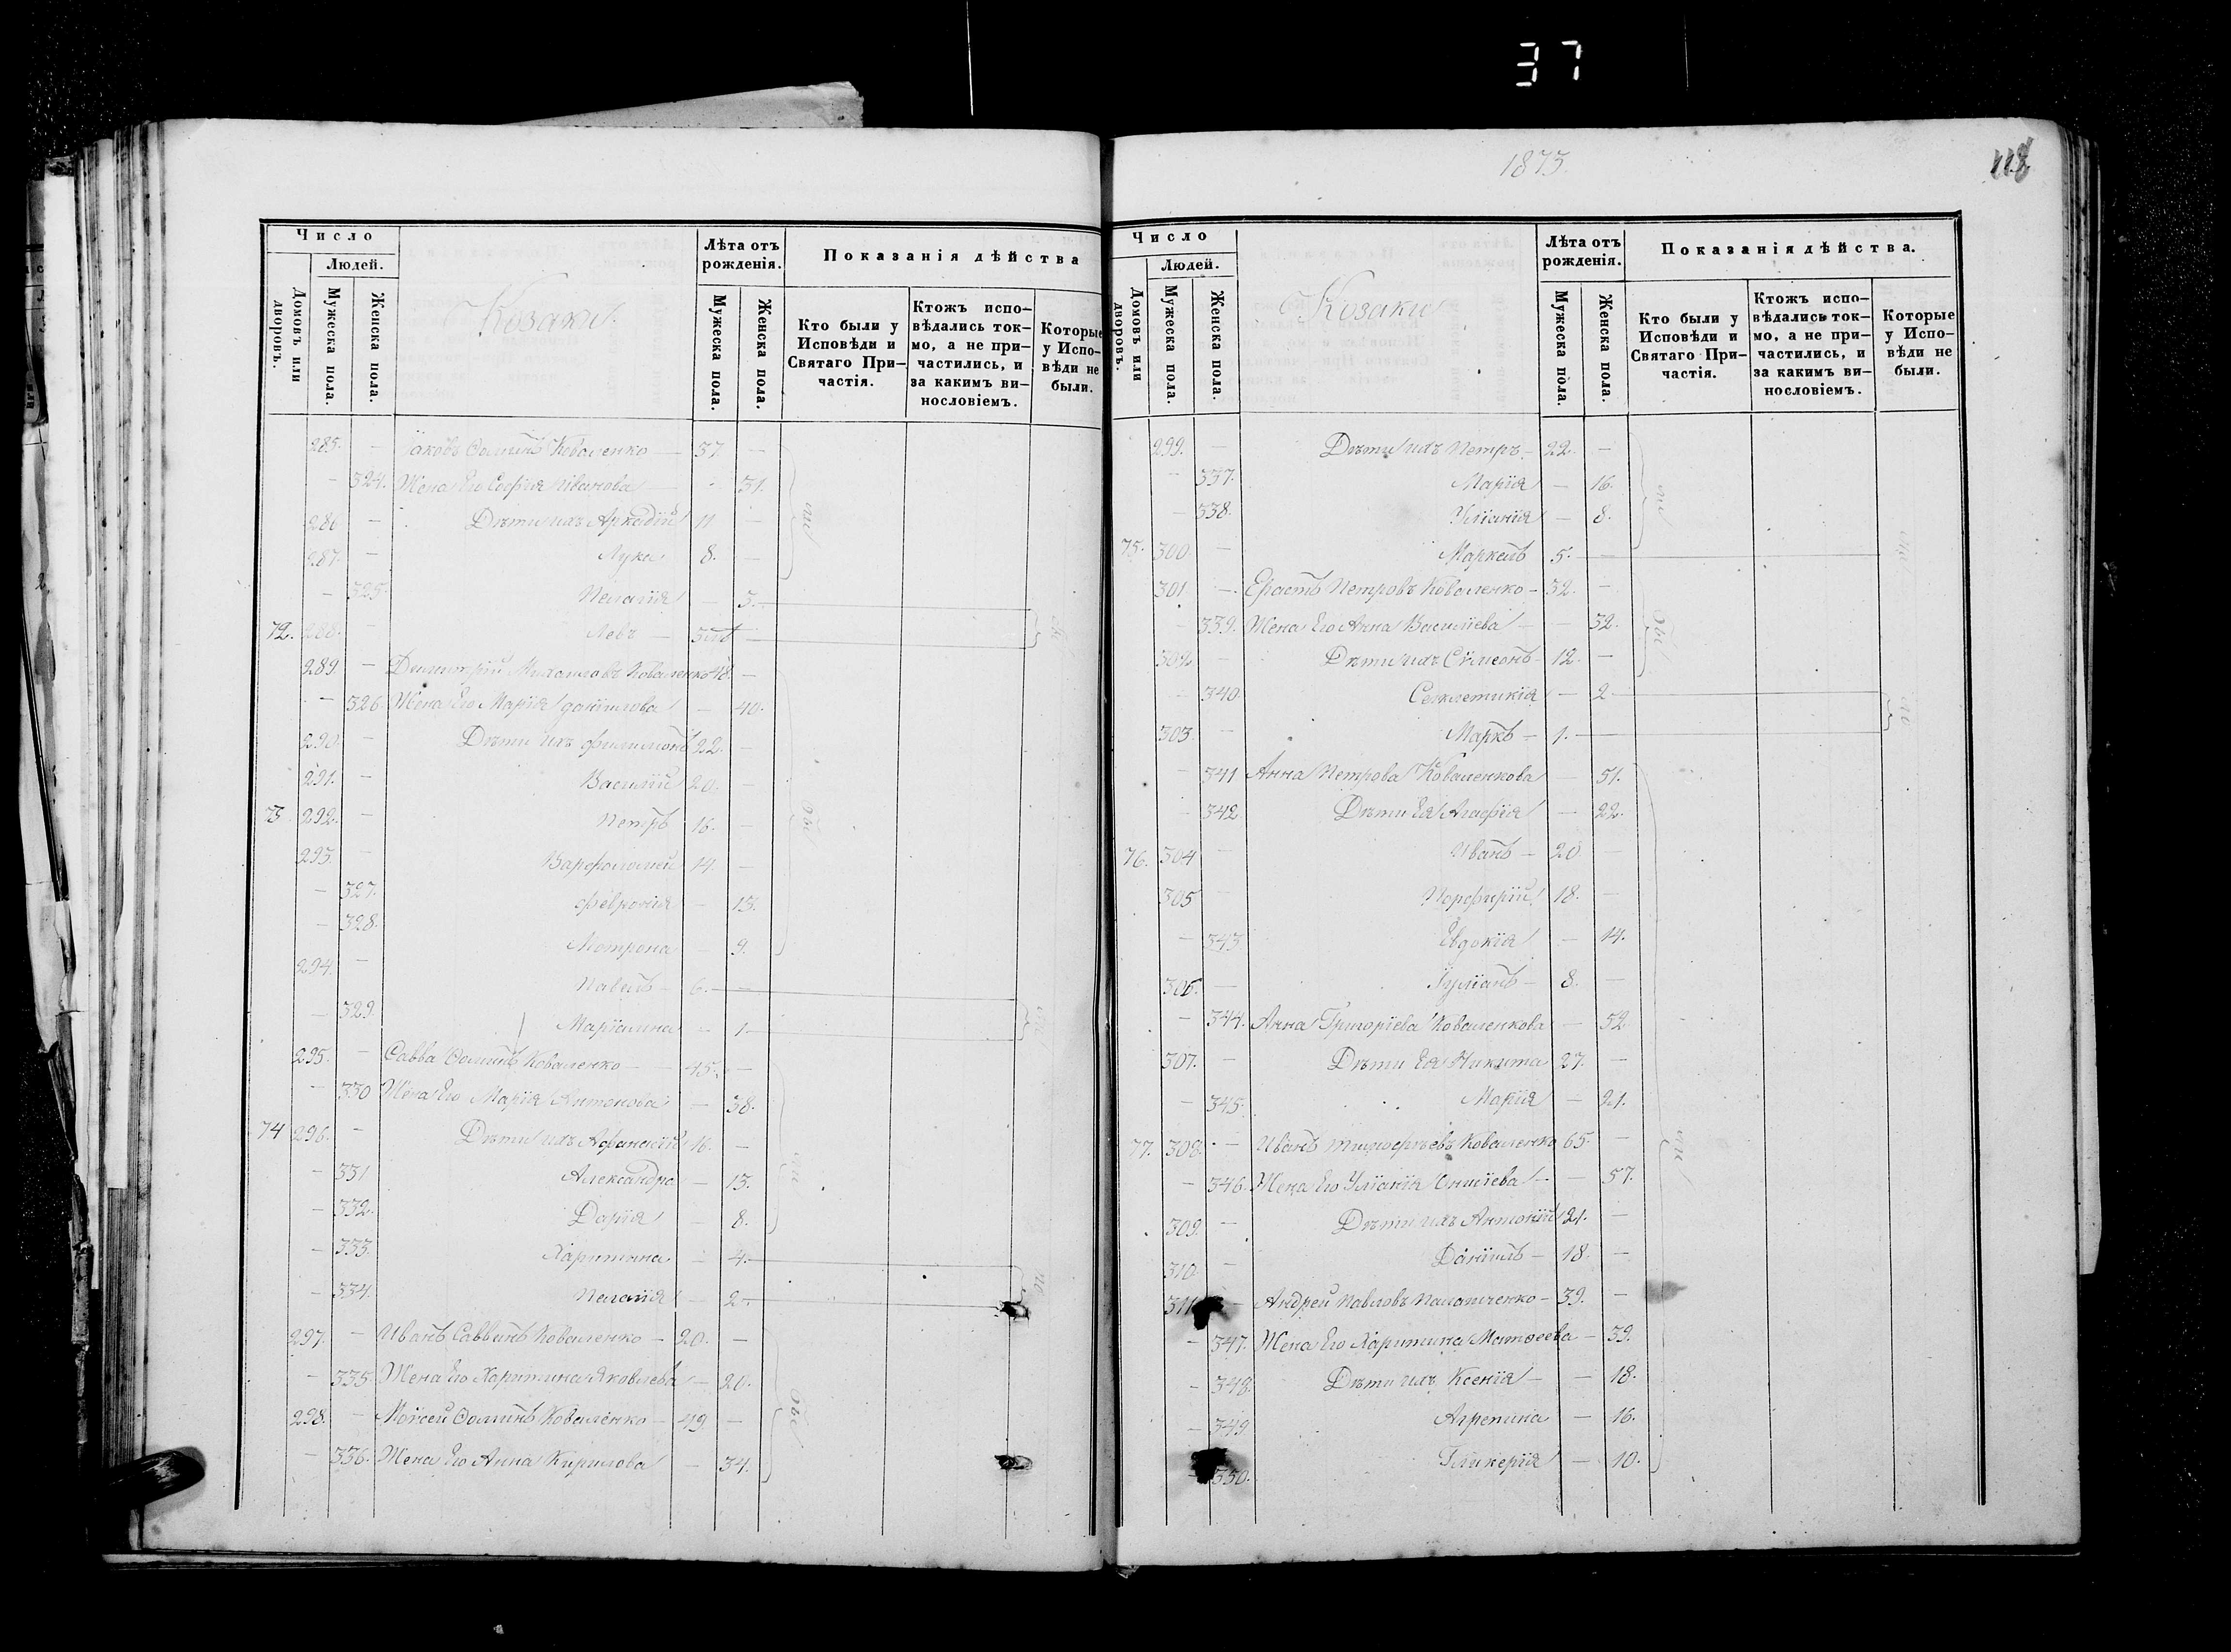 37
1873.
118
Число
Людей.
Домовъ или дворовъ.
Мужеска пола.
Женска пола.
Козаки.
Лѣта отъ рожденія.
Мужеска пола.
Женска пола.
Показанія дѣйства
Кто были у Исповѣди и Святаго При-
частія.
Ктожъ испо-
вѣдались ток-
мо, а не при-
частились, и
за какимъ ви-
нословіемъ.
Которые
у Испо-
вѣди не
были.
285. — Іаковъ Ѳоминъ Коваленко — 37 —
— 324. Жена Его Софія Иванова — - 31.
286 — Дѣти ихъ Аркадій 11 —
287. — Лука 8. —
— 325. Пелагія — 3.
72. 288. — Левъ —
289. — Димитрій Михаиловъ Коваленко 48. —
— 326. Жена Его Марія Даніилова — 40.
290. — Дѣти ихъ Филимонъ 22. —
291. — Василій 20. —
73 292. — Петръ 16. —
293. — Варфоломей 14. —
— 327. Феѵронія — 13.
— 328. Мотрона — 9.
294. — Павелъ — 6. —
— 329. Маріамна — 1.
295. — Савва Ѳоминъ Коваленко — 45. —
— 330 Жена Его Марія Антонова — 38.
74 296. — Дѣти ихъ Афанасій 16. —
— 331 Александра — 13.
— 332. Дарія — 8.
— 333. Харитина — 4.
— 334. Пелагія — 2.
297. — Иванъ Саввинъ Коваленко — 20. —
— 335 Жена Его Харитина Яковлева — 20.
298. — Моѵсей Ѳоминъ Коваленко — 49 —
— 336. Жена Его Анна Кирилова — 34.
Число
Людей.
Домовъ или дворовъ.
Мужеска пола.
Женска пола.
Козаки
Лѣта отъ рожденія.
Мужеска пола.
Женска пола.
Показанія дѣйства.
Кто были у Исповѣди и Святаго При-
частія.
Ктожъ испо-
вѣдались ток-
мо, а не при-
частились, и
за какимъ ви-
нословіемъ.
Которые
у Испо-
вѣди не
были.
299. — Дѣти ихъ Петръ — 22. —
— 337. Марія — 16.
— 338. Уліанія — 8.
75. 300 — Маркелъ 5. —
301 — Ерастъ Петровъ Коваленко — 32. —
— 339. Жена Его Анна Василіева — — 32.
302 — Дѣти ихъ Сѵмеонъ 12. —
— 340 Секлетикія — 2
303. — Маркъ — 1. —
— 341 Анна Петрова Коваленкова — 51.
— 342 Дѣти Ея Агафія — 22.
76. 304 — Иванъ — 20 —
305 — Порфирій 18. —
— 343 Евдокія — 14.
306. — Іуліанъ — 8. —
— 344. Анна Григоріева Коваленкова — 52.
307. — Дѣти Ея Никита 27. —
— 345. Марія — 21.
77. 308. — Иванъ Тимофѣевъ Коваленко 65. —
— 346. Жена Его Уліанія — — 57.
309. — Дѣти ихъ Антоній 21. —
310 — Даніилъ — 18. —
311 — Андрей Павловъ — 39. —
— 347. Жена Его Харитина Матѳеева — 39.
— 348. Дѣти ихъ Ксенія — — 18.
— 349 Агрепина — 16.
— 350. Гликерія — 10.